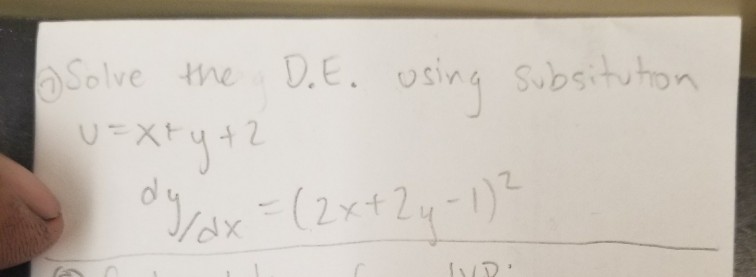 ⑦ Solve the D.E. using subsitution
U=x+y+2
dy/dx = (2x+2y-1)²